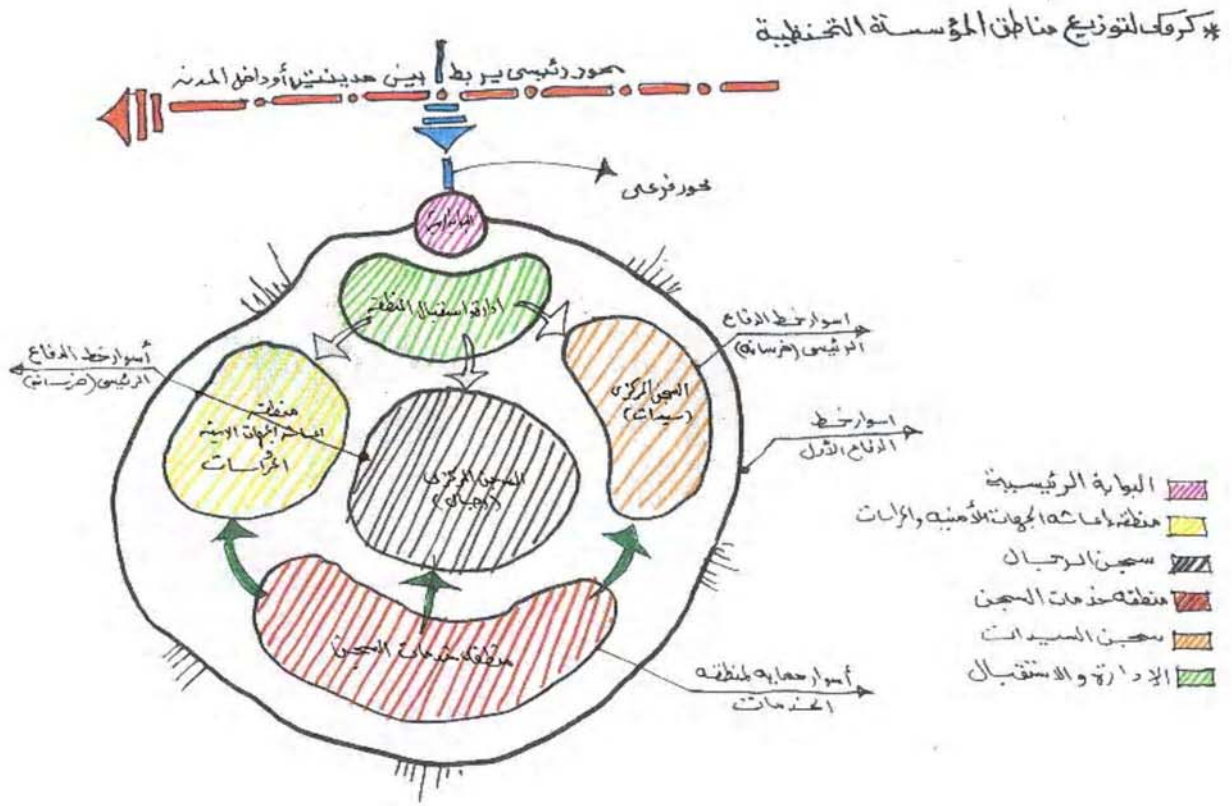 * كروكى لتوزيع مناطق المؤسسة التحفظية
محور رئيسى يربط بين مدينتين أو داخل المدن
محور فرعى
البوابة
إدارة استقبال المنطقة
اسوار خط الدفاع
الرئيسى (خرسانه)
أسوار خط الدفاع
الرئيسى (خرسانه)
السجن المركزى
(سيدات)
منطقة
اعاشة الجهات الامنيه
الحراسات
السجن المركزى
(رجال)
اسوار خط
الدفاع الأول
منطقه خدمات السجن
أسوار حمايه لمنطقه
الخدمات
البوابة الرئيسية
منطقه إعاشه الجهات الأمنيه والحراسات
سجن الرجال
منطقه خدمات السجن
سجن السيدات
الإدارة والاستقبال